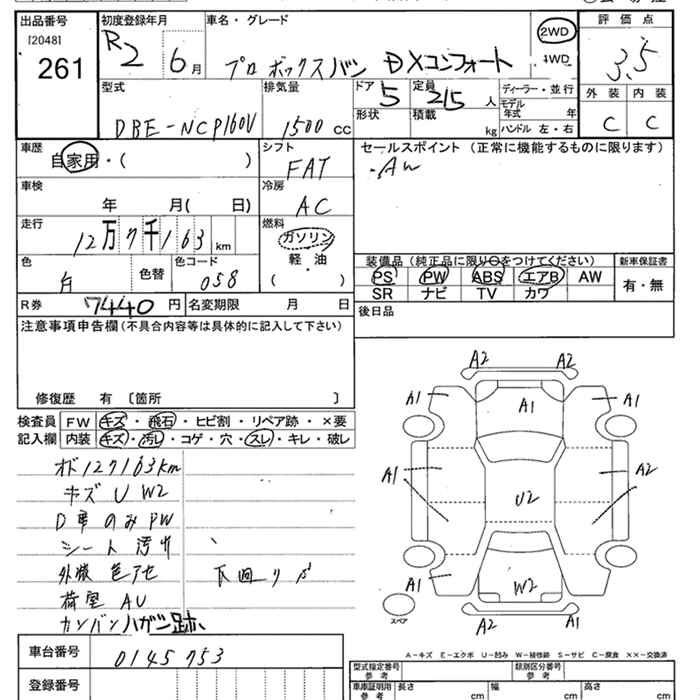 出品番号 初度登録年月 車名・グレード 評価点
[2048]
261
R2 6月 プロボックスバン DXコンフォート 2WD 4WD 3.5
型式 排気量 ドア 定員 ディーラー・並行 外装 内装
DBE-NCP160V 1500 cc 5 2/5 人 モデル年式 年 C C
形状 積載 kg ハンドル 左・右
車歴 シフト セールスポイント (正常に機能するものに限ります)
自家用・( ) FAT ・AW
車検 冷房
年 月( 日) AC
走行 燃料
12万7千163 km ガソリン
軽・油
( )
装備品 (純正品に限り○をつけてください) 新車保証書
PS PW ABS エアB AW 有・無
SR ナビ TV カワ
色 色替 色コード
白 058
R券 7440 円 名変期限 月 日 後日品
注意事項申告欄(不具合内容等は具体的に記入して下さい)
修復歴 有 〔箇所 〕
検査員 FW キズ・飛石・ヒビ割・リペア跡・×要
記入欄 内装 キズ・汚レ・コゲ・穴・スレ・キレ・破レ
オド127163km
キズ U W2
D席のみPW
シート汚れ
外板色アセ 下回りサビ
荷室AU
カンバンハガシ跡
A2 A2
A1 A1 A1
A1 U2 A2
A1 W2 A1
スペア A2 A2
A-キズ E-エクボ U-凹み W-補修跡 S-サビ C-腐食 XX-交換済
車台番号 0145753
登録番号
型式指定番号 参考 類別区分番号 参考
車庫証明用 参考 長さ cm 幅 cm 高さ cm